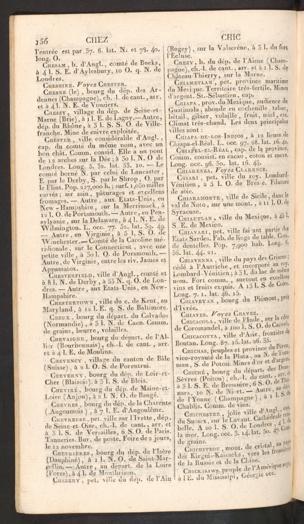 156 CHEZ CHIC
l'entrée est par 37. 6. lat. N. et 78. 40.
long. O.
CHESAM, b. d'Angl., comté de Bucks,
à 4 l. S. E. d'Aylesbury, 10 O. q. N. de
Londres.
CHESNE (le), bourg du dép. des Ar-
dennes (Champagne), ch. l. de cant., arr.
et à 4 l. N. E. de Vouziers.
CHESSY, village du dép. de Seine-et-
Marne (Brie), à 1 l. E. de Lagny.—Autre,
dép. du Rhône, à 3 l. S. S. O. de Ville-
franche. Mine de cuivre exploitée.
CHESTER, ville considérable d'Angl.,
cap. du comté du même nom, avec un
bon chât. Comm. considé. Elle a un pont
de 12 arches sur la Dée; à 50 l. N. O. de
Londres. Long. 5. 30. lat. 53. 10. — Le
comté borné N. par celui de Lancaster,
E. par le Derby, S. par le Shrop., O. par
le Flint. Pop. 227,000 h.; surf. 1,050 milles
carrés;
fromages. — Autre, aux Etats-Unis, en
New-Hampshire, sur la Merrimack, à
12 l. O. de Portsmouth. — Autre, en Pen-
sylvanie, sur la Delaware, à 4 l. N. E. de
Wilmington. L. occ. 77. 50. lat. 39. 49.
— Autre, en Virginie, à 5 l. S. O. de
Winchester. — Comté de la Caroline mé-
ridionale, sur le Connecticut, avec une
petite ville, à 30 l. O. de Portsmouth. —
Autre, de Virginie, entre les riv. James et
Appamatox.
CHESTERFIELD, ville d'Angl., comté et
à 8 l. N. de Derby, à 55 N. q. O. de Lon-
dres. — Autre, aux Etats-Unis, en New-
Hampshire.
CHESTERTOWN, ville du c. de Kent, au
Maryland, à 12 l. E. q. S. de Baltimore.
CHEUX, bourg du départ. du Calvados
(Normandie), à 3 l. N. de Caen. Comm.
de grains, beurre, volailles.
CHEVAGNE, bourg du départ. de l'Al-
lier (Bourbonnais), ch. l. de cant., arr.
et à 4 l. E. de Moulins.
CHEVENEY, village du canton de Bâle
(Suisse), à 2 l. O. S. de Porentrui.
CHEVERNY, bourg du dép. de Loir-et-
Cher (Blaisois), à 3 l. S. de Blois.
CHEVIRÉ, bourg du dép. de Maine-et-
Loire (Anjou), à 2 l. N. O. de Baugé.
CHEVRES, bourg du dép. de la Charente
(Angoumois), à 7 l. E. d'Angoulême.
CHEVREUSE, pet. ville sur l'Ivette, dép.
de Seine-et-Oise, ch.-l. de cant., arr. et
à 3 l. S. de Versailles, 6 S. O. de Paris.
Tanneries. Bur. de poste. Foire de 2 jours,
le 12 novembre.
CHEVRIÈRES, bourg du dép. de l'Isère
(Dauphiné), à 2 l. N. O. de Saint-Mar-
cellin. — Autre, au départ. de la Loire
(Forez), à 4 l. de Montbrison.
CHEZERY, pet. ville du dép. de l'Ain
(Bugey), sur la Valserène, à 5 l. du fort
l'Ecluse.
CHEZY, b. du dép. de l'Aisne (Cham-
pagne), ch.-l. de cant., arr. et à 2 l. S. de
Château-Thierry, sur la Marne.
CHIAMETLAN, pet. province maritime
du Mexique. Territoire très-fertile. Mines
d'argent. St.-Sébastien, cap.
CHIAPA, prov. du Mexique, audience de
Guatimala, abonde en cochenille, tabac,
miel, gibier, volaille, fruit, miel, etc.
Climat très-chaud. Les deux principales
villes sont :
CHIAPA-DE-LOS-INDOS, à 12 lieues de
Chiapa-el-Réal. L. occ. 97. 68. lat. 16. 49.
CHIAPA-EL-RÉAL, cap. de la province.
Comm. consist. en cacao, coton et soie.
Long. occ. 98. 50. lat. 16. 45.
CHIARENZA.
CHIARI, pet. ville du roy. Lombard-
Vénitien, à 5 l. O. de Bresse. Filature
de soie.
CHIARAMONTE, ville de Sicile, dans le
val de Noto, sur une mont., à 11 l. O. de
Syracuse.
CHIAUTELA, ville du Mexique, à 45 l.
S. E. de Mexico.
CHIAVARI, pet. ville fai sant partie des
Etats Sardes. Fab. de linge de table. Com.
de dentelles. Pop. 7,900 hab. Long. 6.
56. lat. 44. 21.
CHIAVENNA, ville du pays des Grisons
cédé à l'Autriche, et incorporé au roy.
Lombard-Vénitien; à 3 l. du lac du même
nom. Fort comm., surtout en excellens
vins et fruits exquis. A 13 l. S. de Coire.
Long. 7. 1. lat. 46. 15.
CHIAVEYAN, bourg du Piémont, prov.
d'Ivrée.
CHICACOLE, ville de l'Inde, sur la côte
de Coromandel.
CHICAGOTTA, ville d'Asie, frontière du
Boutan. Long. 87. 35. lat. 26. 35.
CHICHAS, peuples et province de Pérou,
vice-royauté de la Plata, au N. de Tucu-
man, S. de Potosi. Mines d'or et d'argent.
CHICHÉ, bourg du départ. des Deux-
Sèvres (Poitou), ch.-l. de canton, arr. et
à 2 l. S. E. de Bressuire. — Autre, au dép.
de l'Yonne (Champagne), à 1 l. S. de
Chablis. Comm. de vins.
CHICHESTER, jolie ville d'Angl., cap.
du Sussex, sur le Lavant. Cathédrale très-
belle. A 20 l. S. O. de Londres, 4 de
la mer. Long. occ. 3. 14. lat. 50. 47.
de grain.
des Kirguis-Kaissaks, vers les frontières
de la Russie et de la Chine.
CHICKASAWS, peuple de l'Amérique sept.,
à l'E. du Mississipi, Géorgie occ.